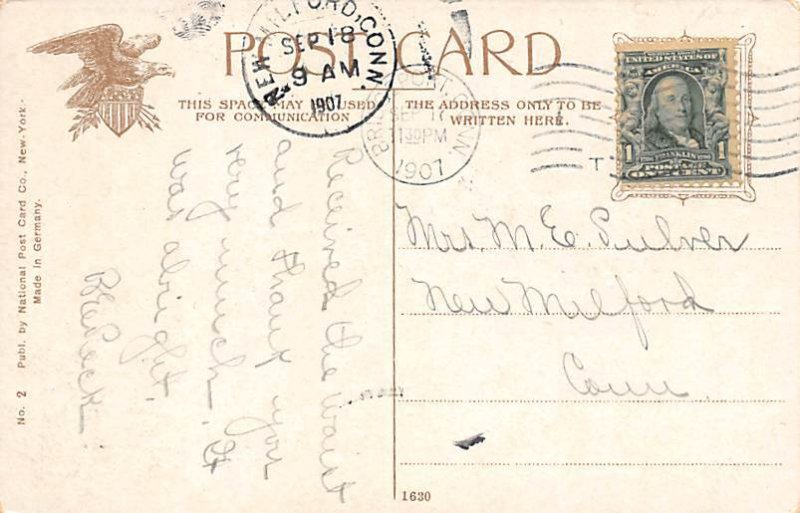 POST CARD
THIS SPACE MAY BE USED
FOR COMMUNICATION
THE ADDRESS ONLY TO BE
WRITTEN HERE.
NEW MILFORD, CONN.
SEP 18
9 AM
1907
CONN.
SEP 17
1130PM
1907
UNITED STATES OF
AMERICA
1 FRANKLIN 1
POSTAGE
ONE CENT
T
Mrs. M. E. Pulver
New Milford
Conn
Received the waist
and thank you
very much. It
was alright.
Peck.
No. 2 Publ. by National Post Card Co., New-York.
Made in Germany.
1630